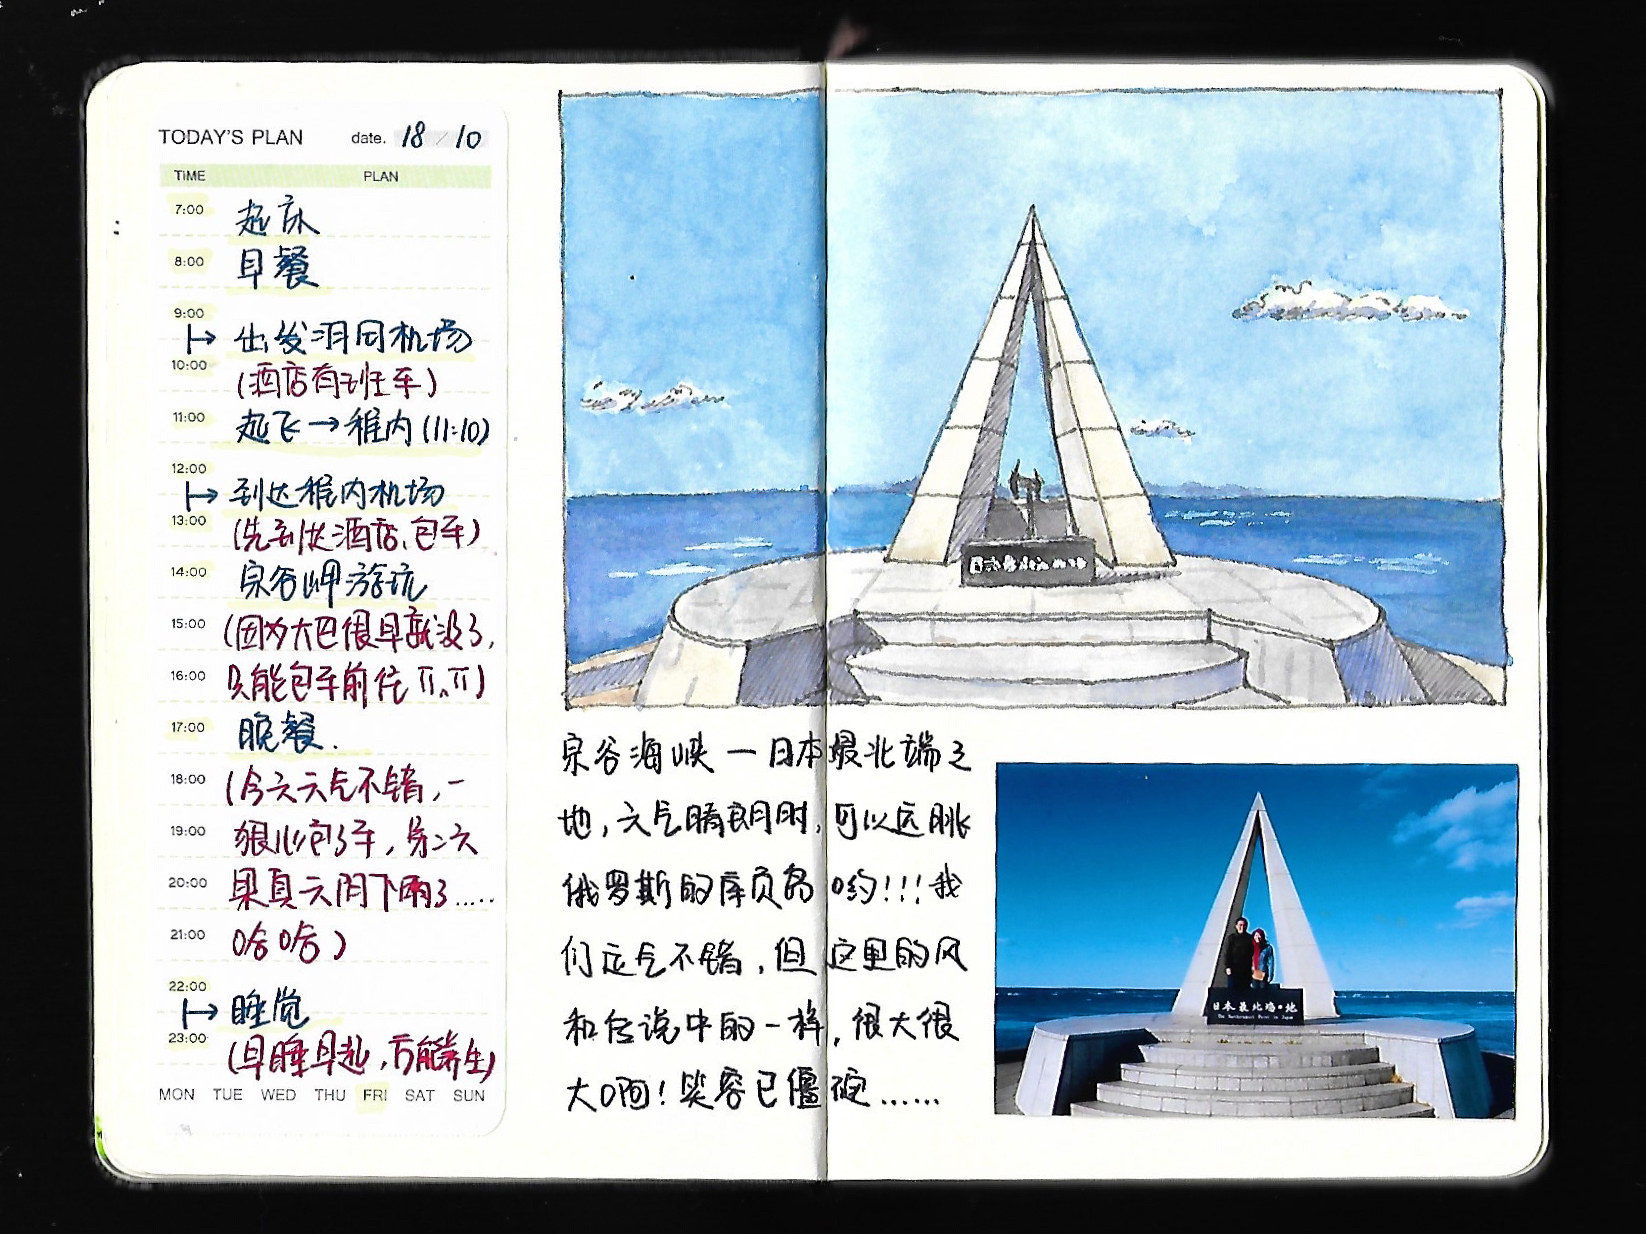 TODAY'S PLAN date. 18 / 10
TIME PLAN
7:00 起床
8:00 早餐
9:00
出发羽田机场
10:00
(酒店有班车)
11:00 起飞→稚内(11:10)
12:00
到达稚内机场
13:00
(先到达酒店、包车)
14:00 宗谷岬游玩
15:00 (因为大巴很早就没了,
16:00 只能包车前往 T^T)
17:00 晚餐.
18:00 (今天天气不错,一
19:00 狠心包了车,第二天
20:00 果真天阴下雨了.....
21:00 哈哈)
22:00
睡觉
23:00
(早睡早起,方能养生)
MON TUE WED THU FRI SAT SUN
宗谷海峡一日本最北端之
地,天气晴朗时,可以远眺
俄罗斯的库页岛哟!!!我
们运气不错,但这里的风
和传说中的一样,很大很
大啊!笑容已僵硬......
日本最北端の地
The Northernmost Point in Japan